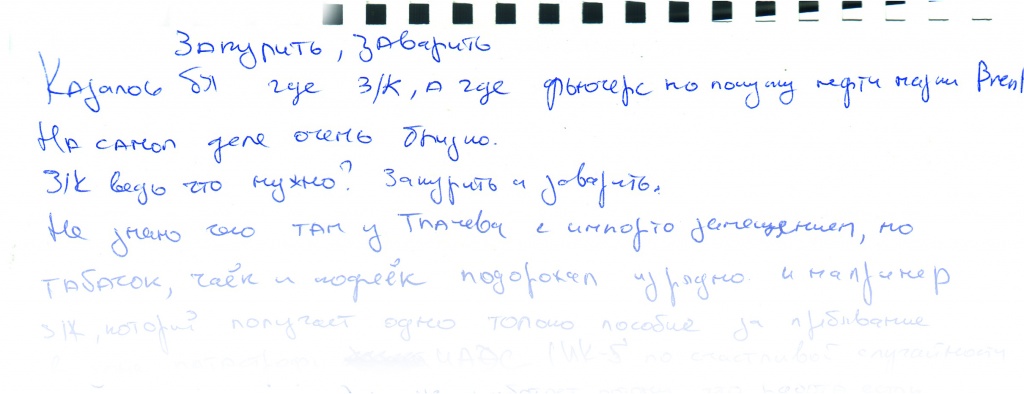 Закурить, заварить
Казалось бы где З/К, а где фьючерс на покупку нефти марки Brent
На самом деле очень близко.
З/К ведь что нужно? Закурить и заварить.
Не знаю что там у Ткачева с импорто замещением, но
табачок, чаёк и кофеёк подорожал изрядно. и например
З/К, который получает одно только пособие за пребывание
(ИК-5 по счастливой случайности